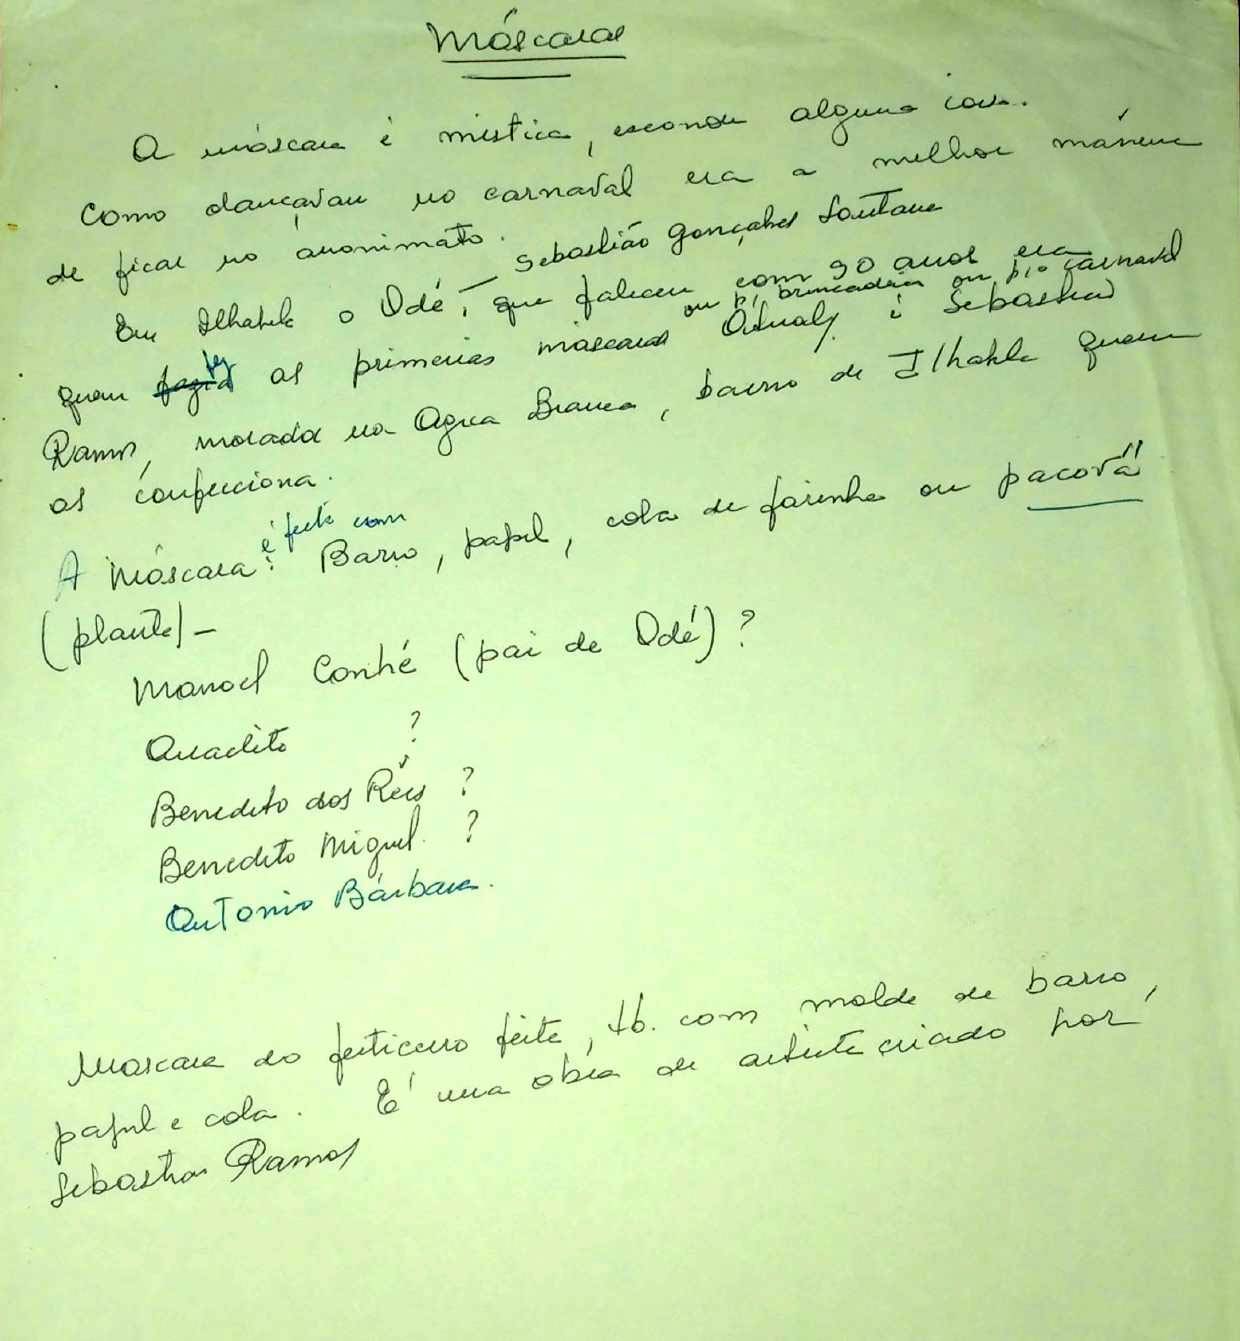 Máscaras
A máscara é mistica, esconde alguma coisa.
Como dançavam no carnaval era a melhor maneira
de ficar no anonimato.
Sebastião Gonçalves Santana
Em Ilhabela o Odé, que faleceu com 90 anos era
ou p/ brincadeira ou p/ o carnaval
quem fazia fez as primeiras máscaras Atualy. é Sebastião
Ramos, morador na Agua Branca, bairro de Ilhabela quem
as confecciona.
é feita com
A Máscara: Barro, papel, cola de farinha ou pacová"
(planta) –
Manoel Conhé (pai de Odé) ?
Benedito dos Reis ?
Benedito Miguel. ?
Antonio Bárbara.
Mascara do feiticeiro feita, tb. com molde de barro,
papel e cola. É uma obra de artista criado por
Sebastião Ramos